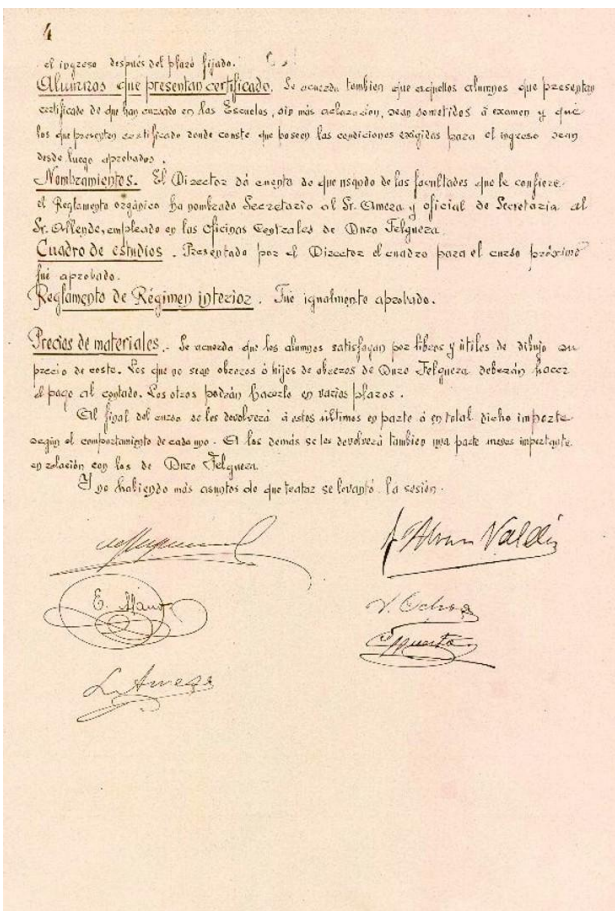 4
el ingreso después del plazo fijado.
Alumnos que presentan certificado. Se acuerda tambien que aquellos alumnos que presentan
certificado de que han cursado en las Escuelas, sin más aclaración, sean sometidos á examen y que
los que presenten certificado donde conste que poseen las condiciones exigidas para el ingreso sean
desde luego aprobados.
Nombramientos. El Director dá cuenta de que usando de las facultades que le confiere
el Reglamento orgánico ha nombrado Secretario al Sr. Ameza y oficial de Secretaria al
Sr. Allende, empleado en las Oficinas Centrales de Duro Felguera.
Cuadro de estudios. Presentado por el Director el cuadro para el curso próximo
fué aprobado.
Reglamento de Régimen interior. Fué igualmente aprobado.
Precios de materiales.- Se acuerda que los alumnos satisfagan por libros y útiles de dibujo su
precio de coste. Los que no sean obreros ó hijos de obreros de Duro Felguera deberán hacer
el pago al contado. Los otros podrán hacerlo en varios plazos.
Al final del curso se les devolverá á estos últimos en parte ó en total dicho importe
según el comportamiento de cada uno. A los demás se les devolverá tambien una parte menos importante
en relación con los de Duro Felguera.
Y no habiendo más asuntos de que tratar se levantó la sesión.
Valdés
E.
V. Ochoa
L. Ameza